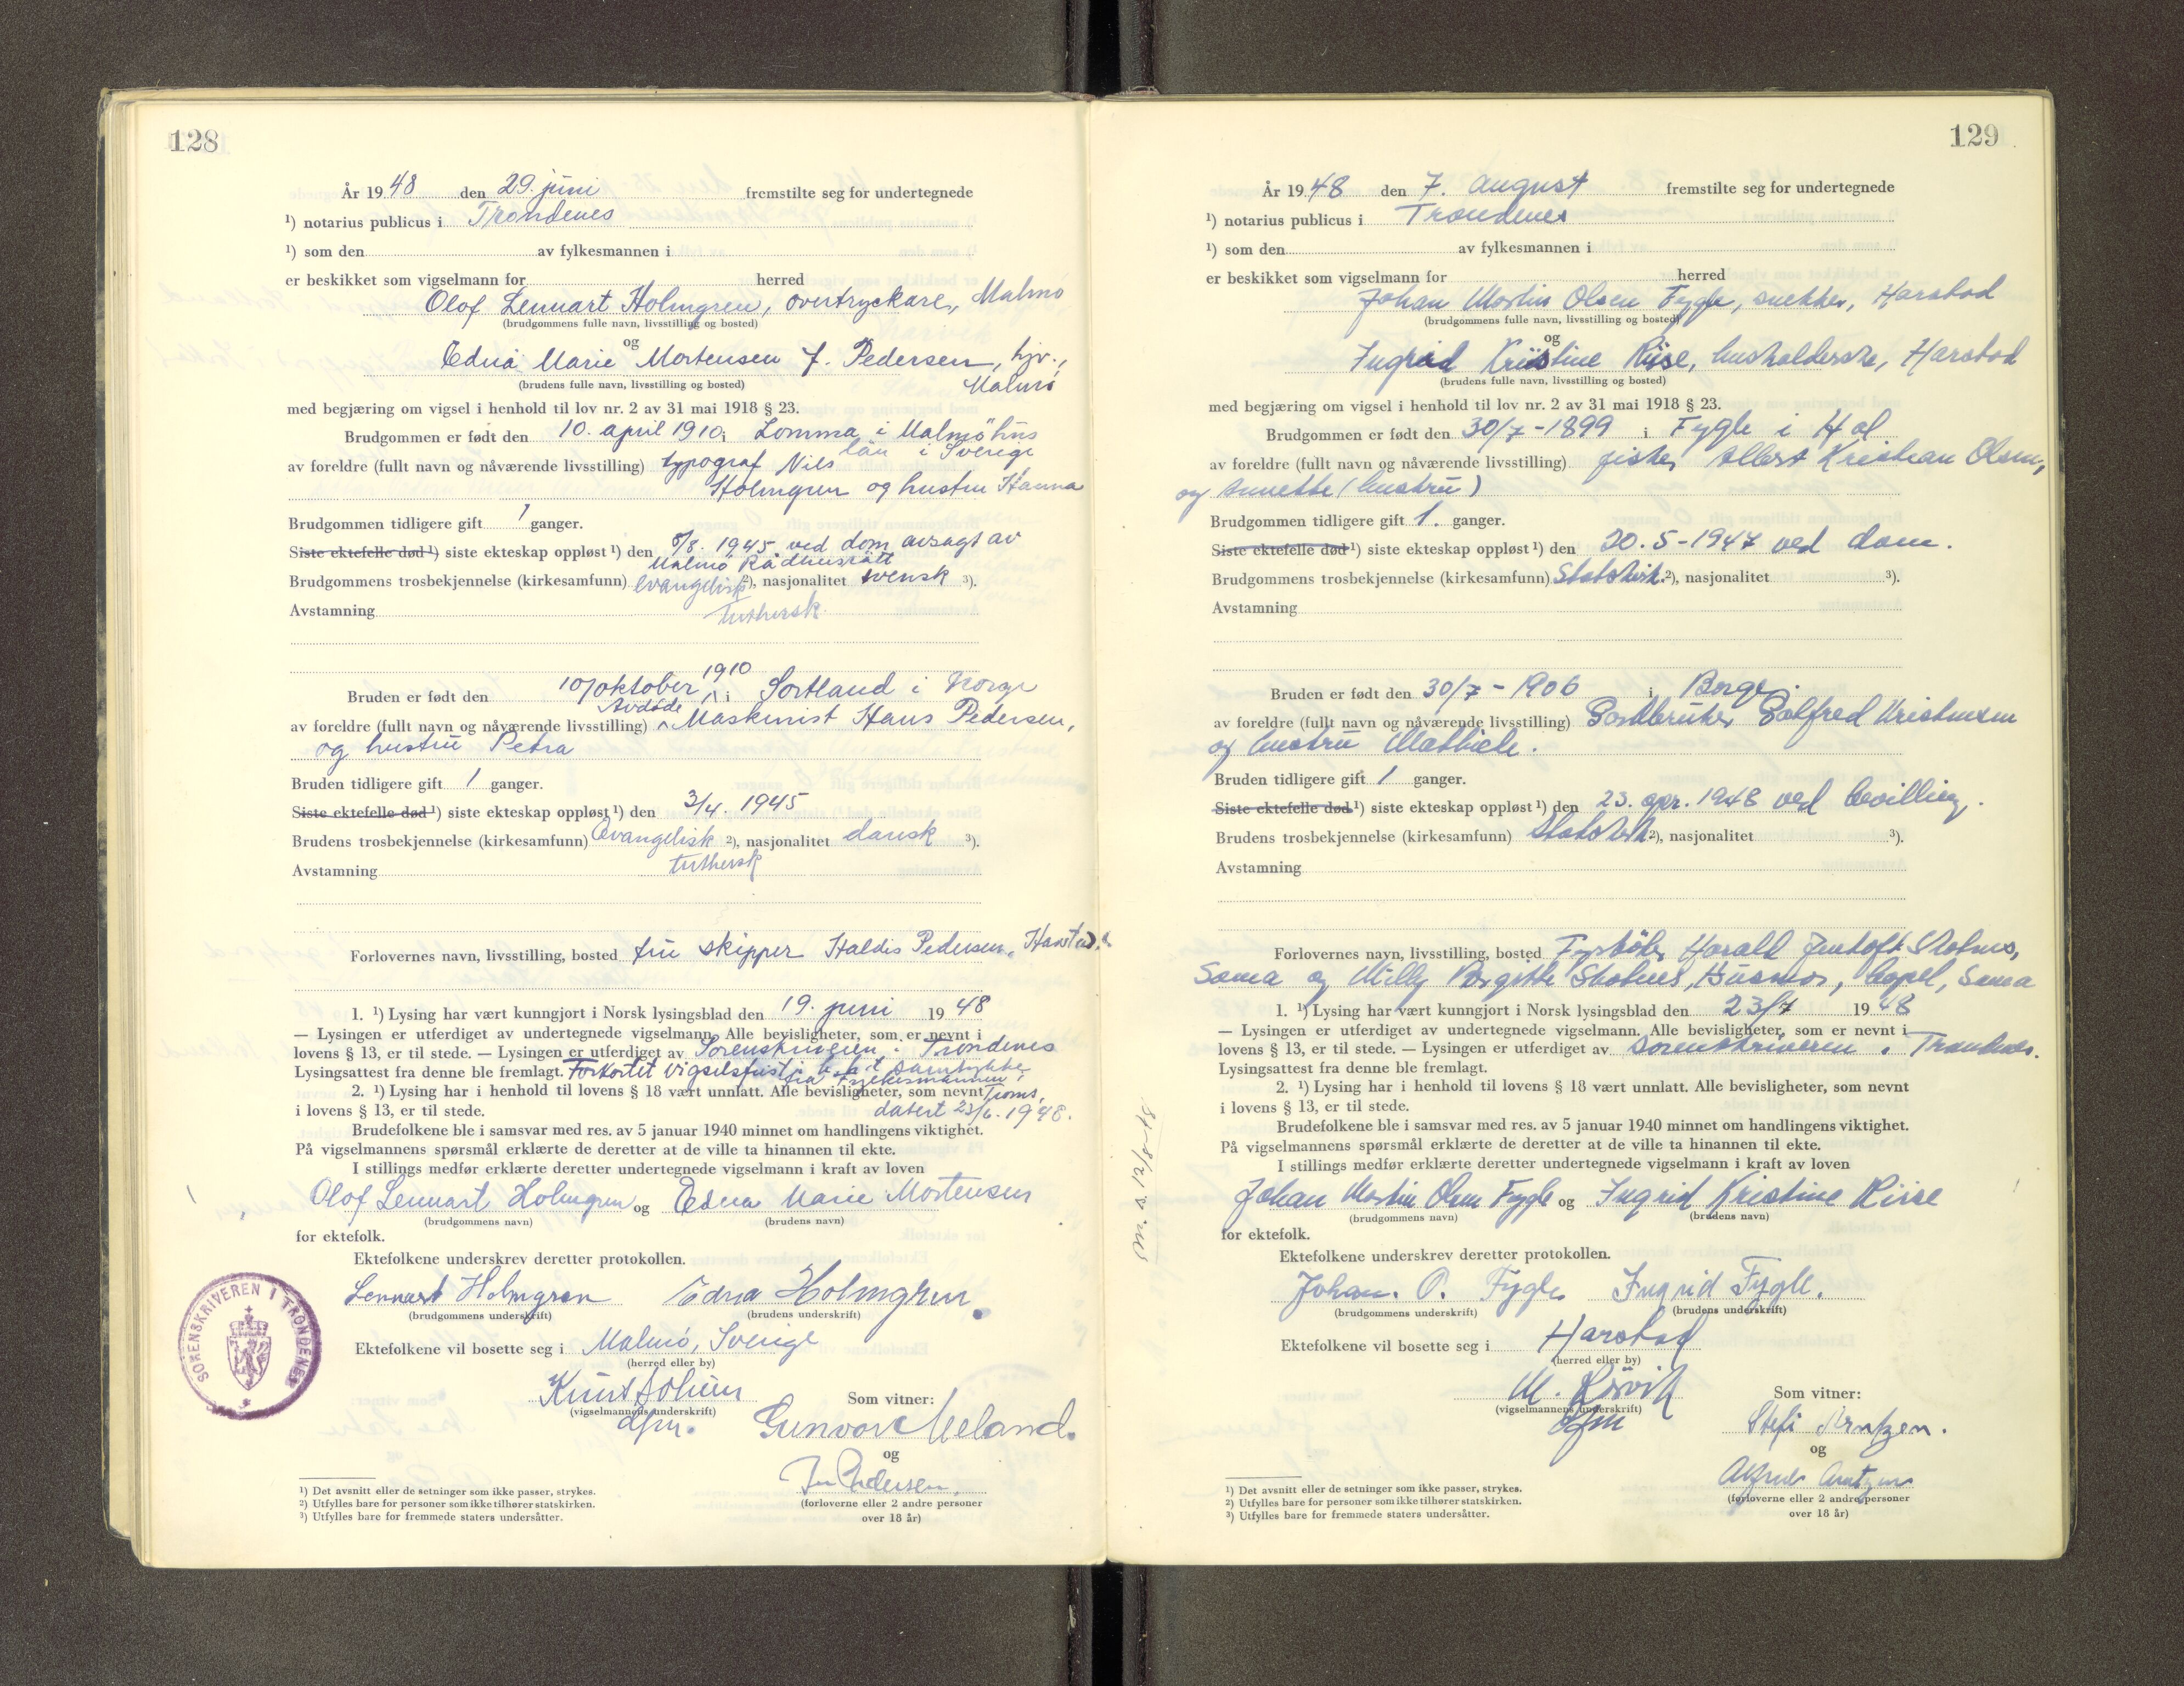 128
År 1948 den 29. juni fremstilte seg for undertegnede
¹) notarius publicus i Trondenes
¹) som den av fylkesmannen i
er beskikket som vigselmann for herred
Olof Lennart Holmgren, overtryckare, Malmö
(brudgommens fulle navn, livsstilling og bosted)
og
Edna Marie Mortensen f. Pedersen, hjv.,
(brudens fulle navn, livsstilling og bosted) Malmö
med begjæring om vigsel i henhold til lov nr. 2 av 31 mai 1918 § 23.
Brudgommen er født den 10. april 1910 i Lomma i Malmöhus
län i Sverige
av foreldre (fullt navn og nåværende livsstilling) typograf Nils
Holmgren og hustru Hanna
Brudgommen tidligere gift 1 ganger.
Siste ektefelle død ¹) siste ekteskap oppløst ¹) den 8/8. 1945. ved dom avsagt av
Malmö Rådhusrätt
Brudgommens trosbekjennelse (kirkesamfunn) evangelisk ²), nasjonalitet svensk ³).
Avstamning luthersk
1910
Bruden er født den 10/oktober i Sortland i Norge
Avdøde
av foreldre (fullt navn og nåværende livsstilling) Maskinist Hans Pedersen,
og hustru Petra
Bruden tidligere gift 1 ganger.
Siste ektefelle død ¹) siste ekteskap oppløst ¹) den 3/4. 1945
Brudens trosbekjennelse (kirkesamfunn) Evangelisk ²), nasjonalitet dansk ³).
Avstamning luthersk
Forlovernes navn, livsstilling, bosted fru skipper Haldis Pedersen, Harstad.
1. ¹) Lysing har vært kunngjort i Norsk lysingsblad den 19. juni 1948
— Lysingen er utferdiget av undertegnede vigselmann. Alle bevisligheter, som er nevnt i
lovens § 13, er til stede. — Lysingen er utferdiget av Sorenskriveren i Trondenes
Lysingsattest fra denne ble fremlagt. Forkortet vigselsfrist samtykke
fra Fylkesmannen i
2. ¹) Lysing har i henhold til lovens § 18 vært unnlatt. Alle bevisligheter, som er nevnt Troms,
i lovens § 13, er til stede. datert 23/6. 1948.
Brudefolkene ble i samsvar med res. av 5 januar 1940 minnet om handlingens viktighet.
På vigselmannens spørsmål erklærte de deretter at de ville ta hinannen til ekte.
I stillings medfør erklærte deretter undertegnede vigselmann i kraft av loven
Olof Lennart Holmgren og Edna Marie Mortensen
(brudgommens navn) (brudens navn)
for ektefolk.
Ektefolkene underskrev deretter protokollen.
Lennart Holmgren Edna Holmgren.
(brudgommens underskrift) (brudens underskrift)
SORENSKRIVEREN I TRONDENES
Ektefolkene vil bosette seg i Malmö, Sverige
(herred eller by)
(vigselmannens underskrift) Som vitner:
Gunvor Meland.
og
Pedersen.
(forloverne eller 2 andre personer
over 18 år)
¹) Det avsnitt eller de setninger som ikke passer, strykes.
²) Utfylles bare for personer som ikke tilhører statskirken.
³) Utfylles bare for fremmede staters undersåtter.
129
År 1948 den 7. august fremstilte seg for undertegnede
¹) notarius publicus i Trondenes
¹) som den av fylkesmannen i
er beskikket som vigselmann for herred
Johan Martin Olsen Fygle, snekker, Harstad
(brudgommens fulle navn, livsstilling og bosted)
og
Ingrid Kristine Riise, husholderske, Harstad
(brudens fulle navn, livsstilling og bosted)
med begjæring om vigsel i henhold til lov nr. 2 av 31 mai 1918 § 23.
Brudgommen er født den 30/7-1899 i Fygle i Hol
av foreldre (fullt navn og nåværende livsstilling) fisker Albert Kristian Olsen,
og Annette (hustru)
Brudgommen tidligere gift 1. ganger.
Siste ektefelle død ¹) siste ekteskap oppløst ¹) den 20.5-1947 ved dom.
Brudgommens trosbekjennelse (kirkesamfunn) Statskirk. ²), nasjonalitet ³).
Avstamning
Bruden er født den 30/7-1906 i Borge.
av foreldre (fullt navn og nåværende livsstilling) Gårdbruker Edlfred Kristensen
og hustru Mathilde.
Bruden tidligere gift 1 ganger.
Siste ektefelle død ¹) siste ekteskap oppløst ¹) den 23. apr. 1948 ved bevilling.
Brudens trosbekjennelse (kirkesamfunn) Statskirk ²), nasjonalitet ³).
Avstamning
Forlovernes navn, livsstilling, bosted Fyrbøter Harald Jentoft Stolnes,
Sama og Milly Borgitte Stolnes, Husmor, Sama
1. ¹) Lysing har vært kunngjort i Norsk lysingsblad den 23/7 1948
— Lysingen er utferdiget av undertegnede vigselmann. Alle bevisligheter, som er nevnt i
lovens § 13, er til stede. — Lysingen er utferdiget av sorenskriveren i Trondenes.
Lysingsattest fra denne ble fremlagt.
2. ¹) Lysing har i henhold til lovens § 18 vært unnlatt. Alle bevisligheter, som er nevnt
i lovens § 13, er til stede.
Brudefolkene ble i samsvar med res. av 5 januar 1940 minnet om handlingens viktighet.
På vigselmannens spørsmål erklærte de deretter at de ville ta hinannen til ekte.
I stillings medfør erklærte deretter undertegnede vigselmann i kraft av loven
Johan Martin Olsen Fygle og Ingrid Kristine Riise
(brudgommens navn) (brudens navn)
for ektefolk.
Ektefolkene underskrev deretter protokollen.
Johan. O. Fygle Ingrid Fygle.
(brudgommens underskrift) (brudens underskrift)
Ektefolkene vil bosette seg i Harstad
(herred eller by)
M. Rørvik
(vigselmannens underskrift) Som vitner:
Arntzen.
og
Arntzen
(forloverne eller 2 andre personer
over 18 år)
¹) Det avsnitt eller de setninger som ikke passer, strykes.
²) Utfylles bare for personer som ikke tilhører statskirken.
³) Utfylles bare for fremmede staters undersåtter.
m. s. 12/8-48